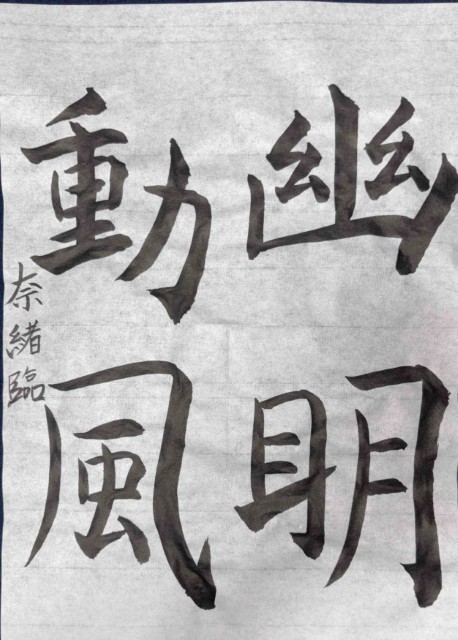 幽明
動風
奈緒臨